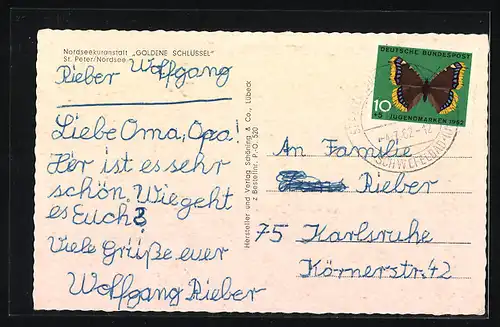 Nordseekuranstalt „GOLDENE SCHLÜSSEL"
St. Peter/Nordsee
Rieber Wolfgang
Liebe Oma, Opa!
Hir ist es sehr
schön. Wie geht
es Euch?
Viele Grüße euer
Wolfgang Rieber
Hersteller und Verlag Schöning & Co., Lübeck
z Bestellnr. P.-O. 520
DEUTSCHE BUNDESPOST
10
+5 JUGENDMARKEN 1962
An Familie
Rieber
75 Karlsruhe
Körnerstr. 42